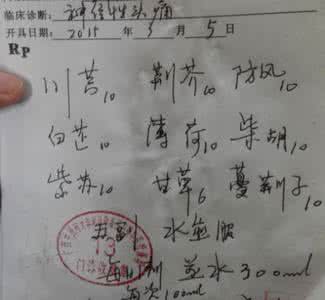 临床诊断: 神经性头痛
开具日期: 2015 年 3 月 5 日
Rp
川芎10 荆芥10 防风10
白芷10 薄荷10 柴胡10
紫苏10 甘草6 蔓荆子10
五副 水煎服
每日1剂 煎水300ml
每次100ml